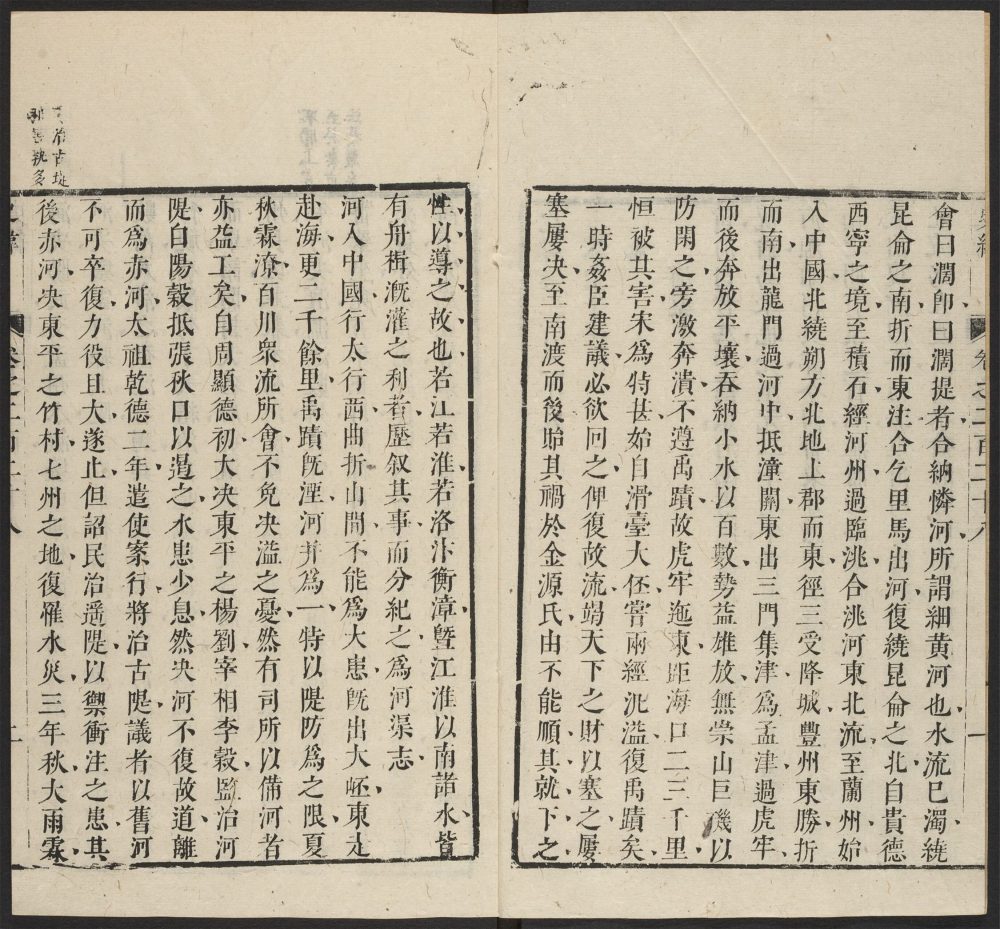 卷之二百二十八
一
會曰濶卽曰濶提者合納憐河所謂細黃河也水流已濁繞
昆侖之南折而東注合乞里馬出河復繞昆侖之北自貴德
西寧之境至積石經河州過臨洮合洮河東北流至蘭州始
入中國北繞朔方北地上郡而東徑三受降城豐州東勝折
而南出龍門過河中抵潼關東出三門集津爲孟津過虎牢
而後奔放平壤吞納小水以百數勢益雄放無崇山巨磯以
防閑之旁激奔潰不遵禹蹟故虎牢迤東距海口二三千里
恒被其害宋爲特甚始自滑臺大伾嘗兩經汎溢復禹蹟矣
一時姦臣建議必欲回之俾復故流竭天下之財以塞之屢
塞屢决至南渡而後貽其禍於金源氏由不能順其就下之
性以導之故也若江若淮若洛汴衡漳曁江淮以南諸水皆
有舟楫漑灌之利者歷叙其事而分紀之爲河渠志
河入中國行太行西曲折山間不能爲大患旣出大岯東走
赴海更二千餘里禹蹟旣湮河并爲一特以隄防爲之限夏
秋霖潦百川衆流所會不免决溢之憂然有司所以備河者
亦益工矣自周顯德初大决東平之楊劉宰相李穀監治河
隄自陽穀抵張秋口以遏之水患少息然决河不復故道離
而爲赤河太祖乾德二年遣使案行將治古隄議者以舊河
不可卒復力役且大遂止但詔民治遥隄以禦衝注之患其
後赤河决東平之竹村七州之地復罹水災三年秋大雨霖
治古堤